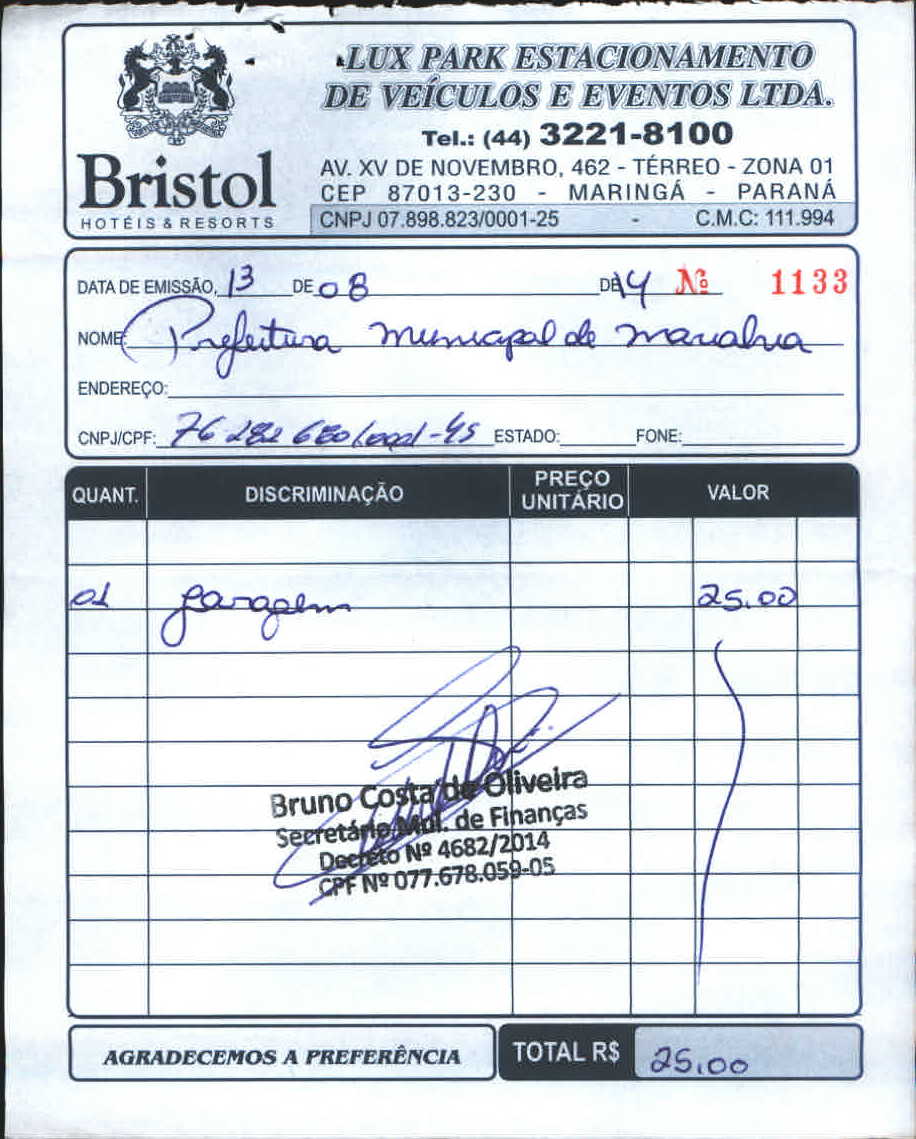 LUX PARK ESTACIONAMENTO
DE VEÍCULOS E EVENTOS LTDA.
Tel.: (44) 3221-8100
Bristol
HOTÉIS & RESORTS
AV. XV DE NOVEMBRO, 462 - TÉRREO - ZONA 01
CEP 87013-230 - MARINGÁ - PARANÁ
CNPJ 07.898.823/0001-25 - C.M.C: 111.994
DATA DE EMISSÃO, 13 DE 08 DE 14 Nº 1133
NOME: Prefeitura Municipal de Marialva
ENDEREÇO:
CNPJ/CPF: 76 282 680/0001-45 ESTADO: FONE:
QUANT. DISCRIMINAÇÃO PREÇO UNITÁRIO VALOR
01 garagem 25.00
Bruno Costa de Oliveira
Secretário Mul. de Finanças
Decreto Nº 4682/2014
CPF Nº 077.678.059-05
AGRADECEMOS A PREFERÊNCIA TOTAL R$ 25,00